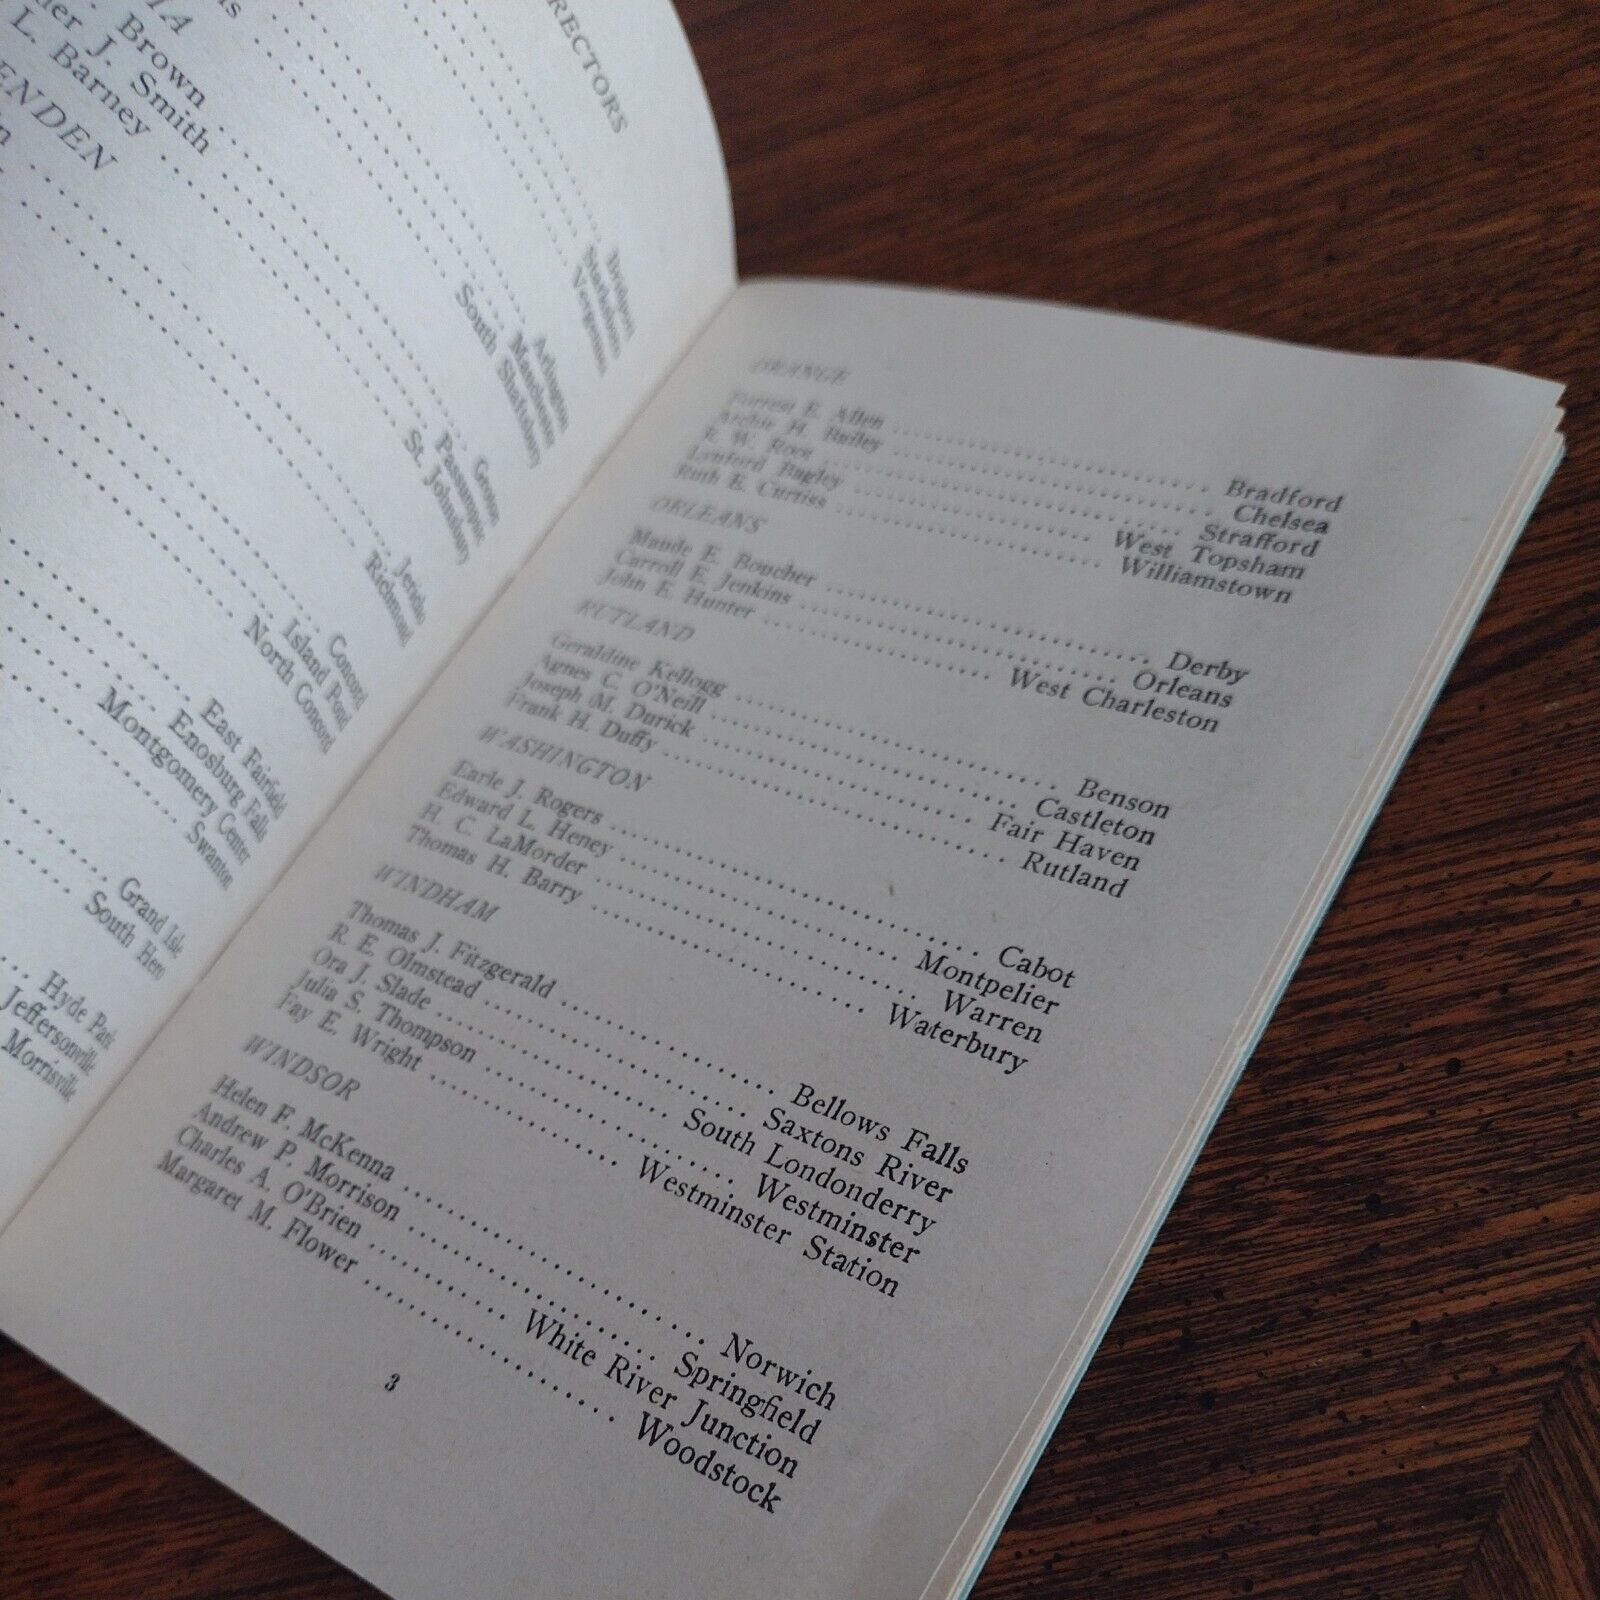 RECTORS
Brown
J. Smith
L. Barney
ENDEN
Bridport
Starksboro
Vergennes
Arlington
Manchester
South Shaftsbury
Groton
Passumpsic
St. Johnsbury
Jericho
Richmond
Concord
Island Pond
North Concord
East Fairfield
Enosburg Falls
Montgomery Center
Swanton
Grand Isle
South Hero
Hyde Park
Jeffersonville
Morrisville
ORANGE
Forrest E. Allen .......... Bradford
Archie H. Bailey .......... Chelsea
E. W. .......... Strafford
Lynford Bagley .......... West Topsham
Ruth E. Curtiss .......... Williamstown
ORLEANS
Maude E. Boucher .......... Derby
Carroll E. Jenkins .......... Orleans
John E. Hunter .......... West Charleston
RUTLAND
Geraldine Kellogg .......... Benson
Agnes C. O'Neill .......... Castleton
Joseph M. Durick .......... Fair Haven
Frank H. Duffy .......... Rutland
WASHINGTON
Earle J. Rogers .......... Cabot
Edward L. Heney .......... Montpelier
H. C. LaMorder .......... Warren
Thomas H. Barry .......... Waterbury
WINDHAM
Thomas J. Fitzgerald .......... Bellows Falls
R. E. Olmstead .......... Saxtons River
Ora J. Slade .......... South Londonderry
Julia S. Thompson .......... Westminster
Fay E. Wright .......... Westminster Station
WINDSOR
Helen F. McKenna .......... Norwich
Andrew P. Morrison .......... Springfield
Charles A. O'Brien .......... White River Junction
Margaret M. Flower .......... Woodstock
3